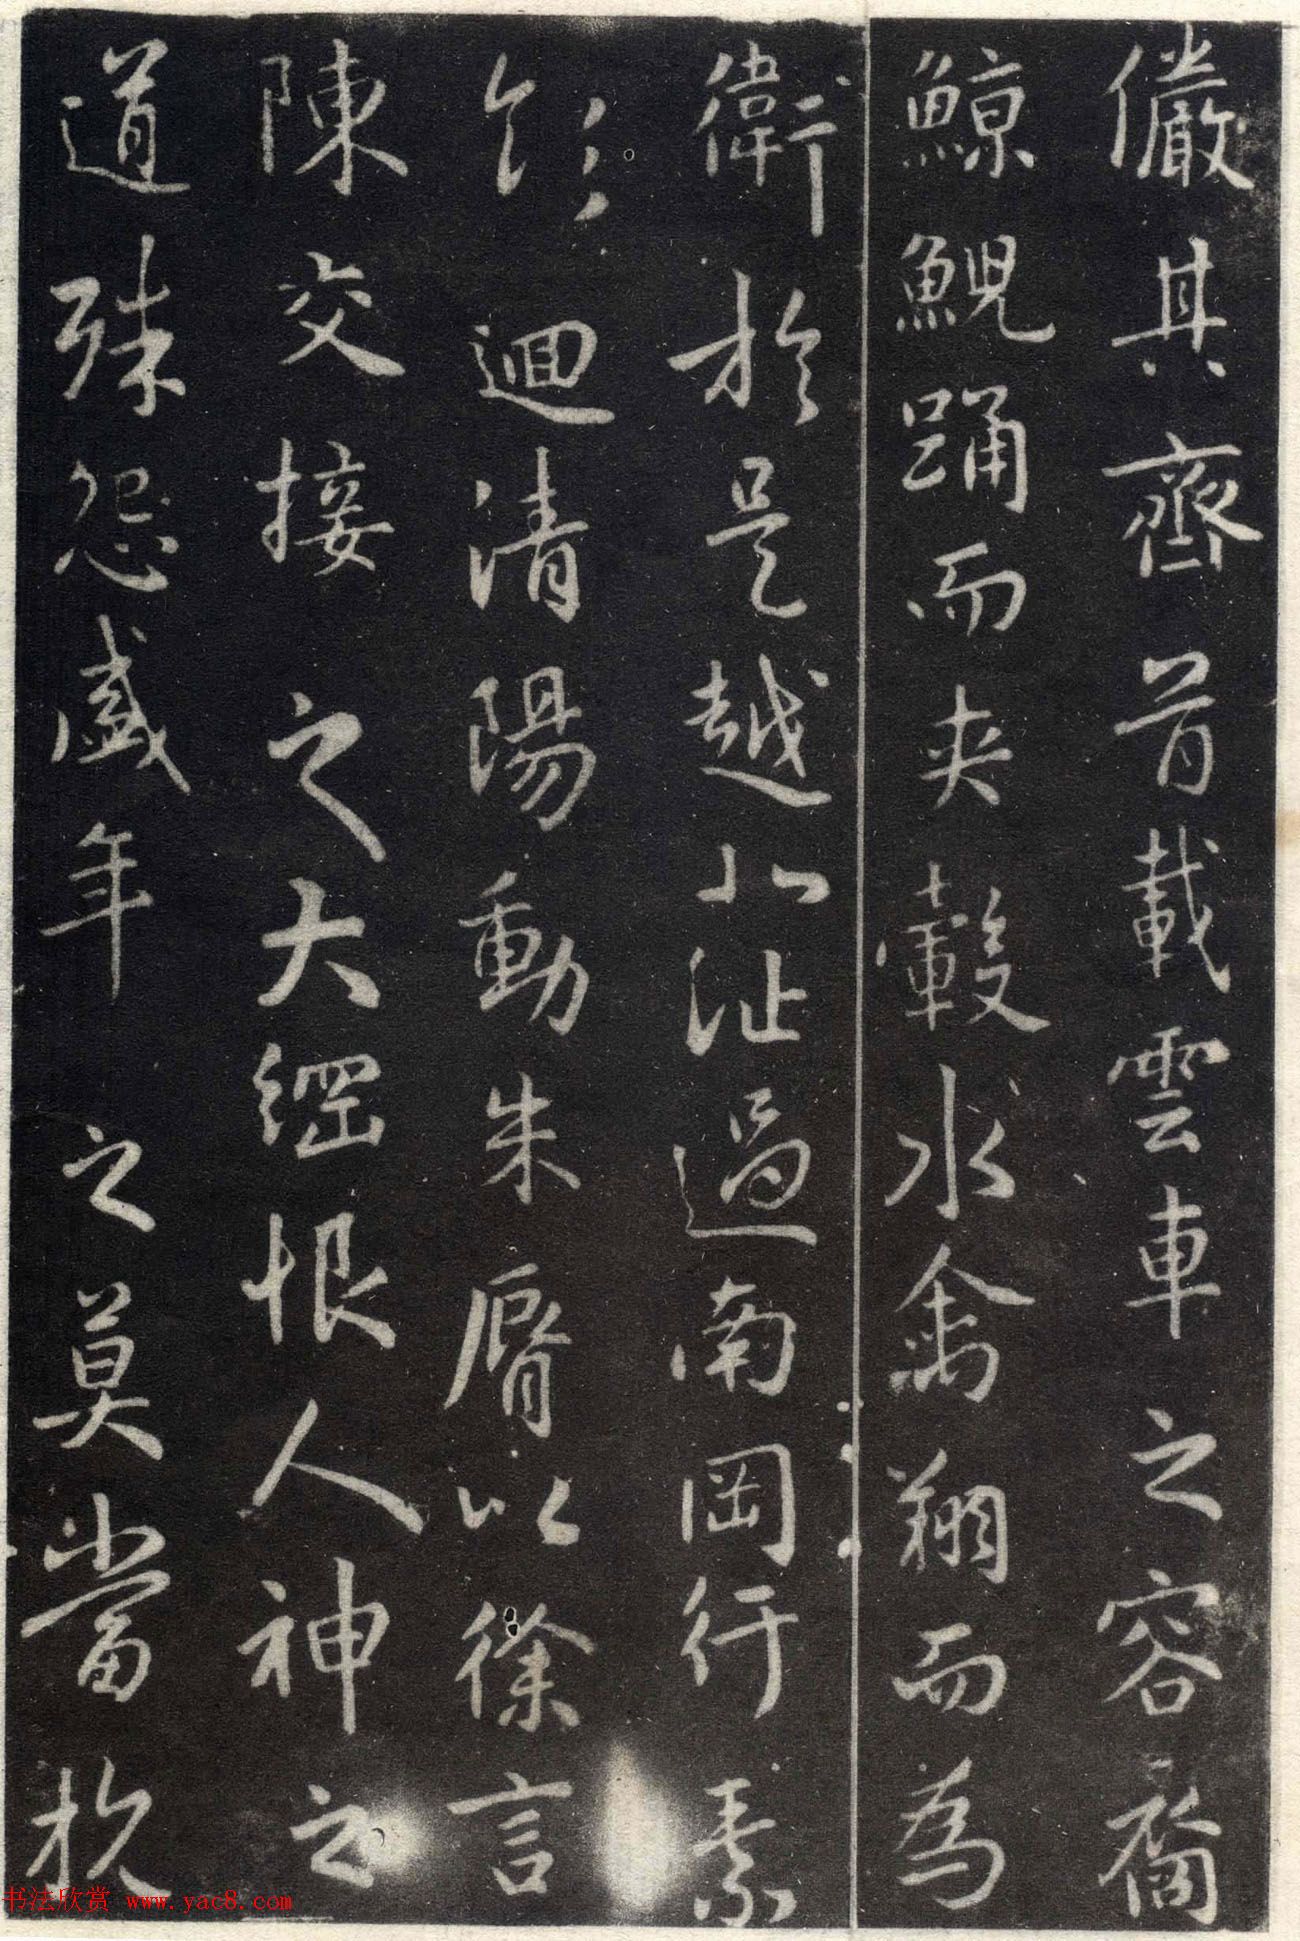 儼其齊首載雲車之容裔
鯨鯢踊而夾轂水禽翔而為
衛於是越北沚過南岡行素
領迴清陽動朱脣以徐言
陳交接之大綱恨人神之
道殊怨盛年之莫當抗
书法欣赏 www.yac8.com